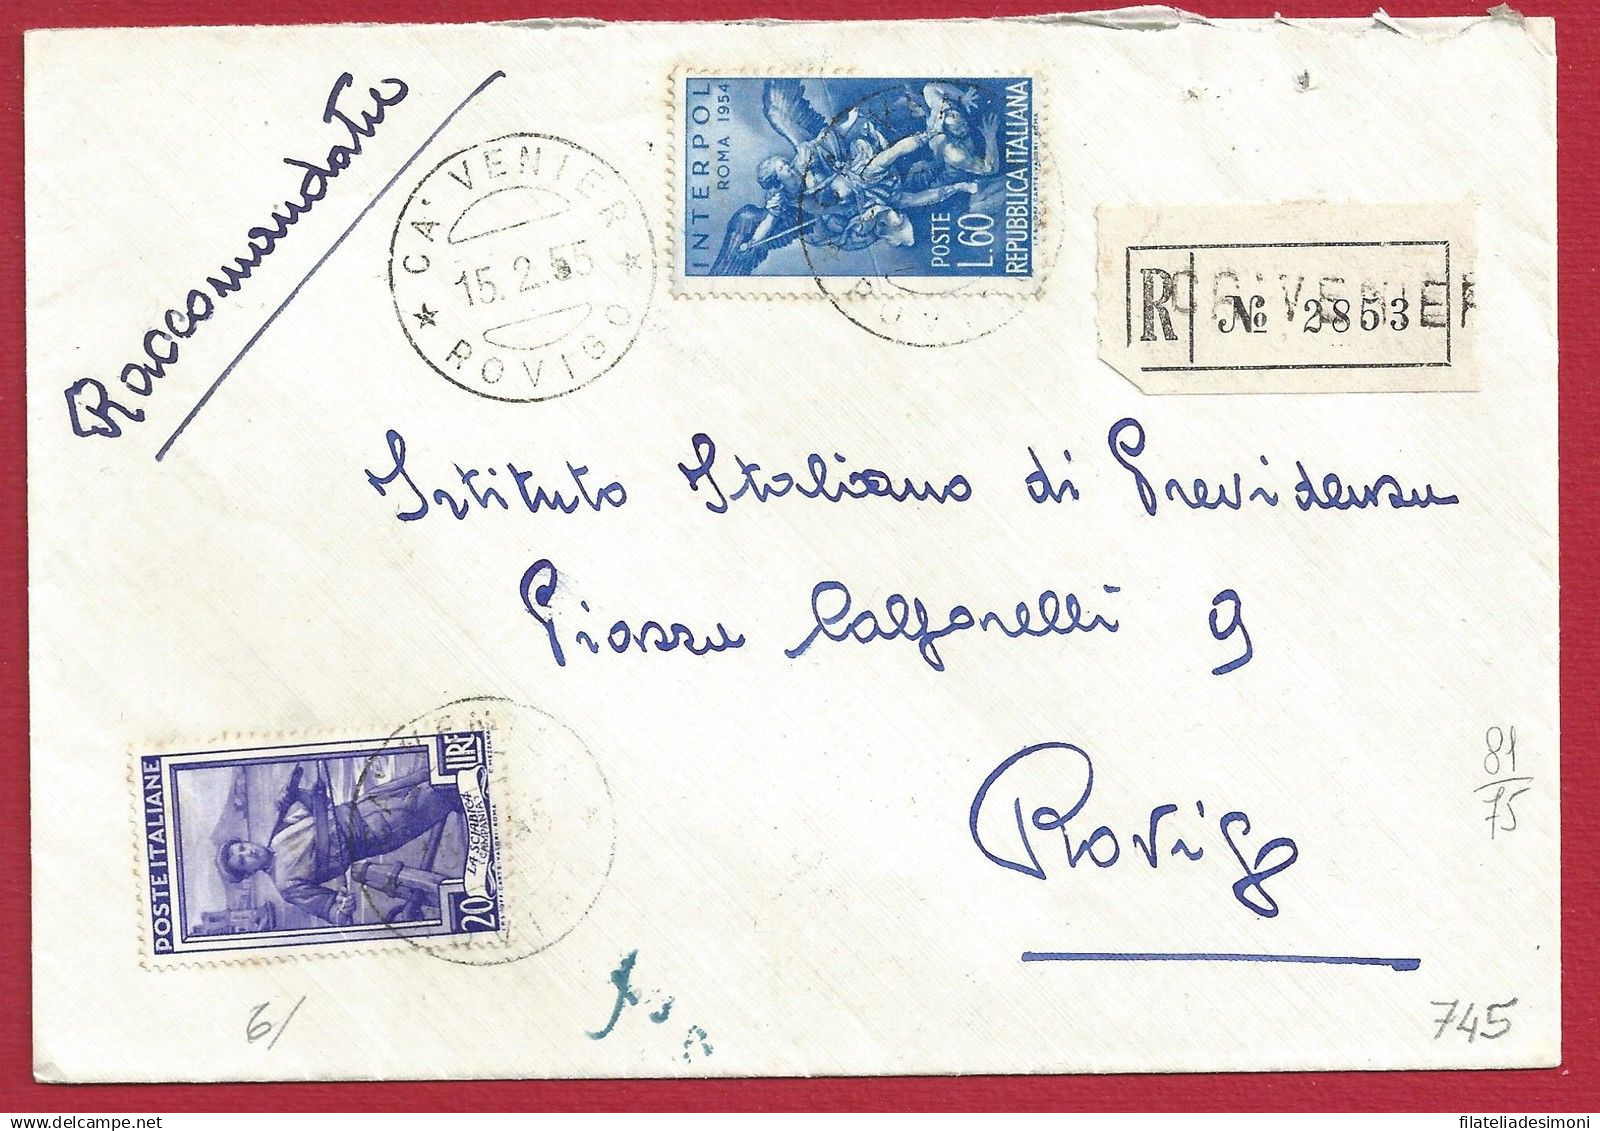 Raccomandato
CA' VENIER
15.2.55
ROVIGO
INTERPOL
ROMA 1954
POSTE
L.60
REPUBBLICA ITALIANA
R
CA' VENIER
No 2853
Istituto Italiano di Previdenza
Piazza Calforelli 9
Rovigo
POSTE ITALIANE
LIRE
20
LA SCIABICA
CAMPANIA
81
75
6/
745
filateliadesimoni
delcampe.net